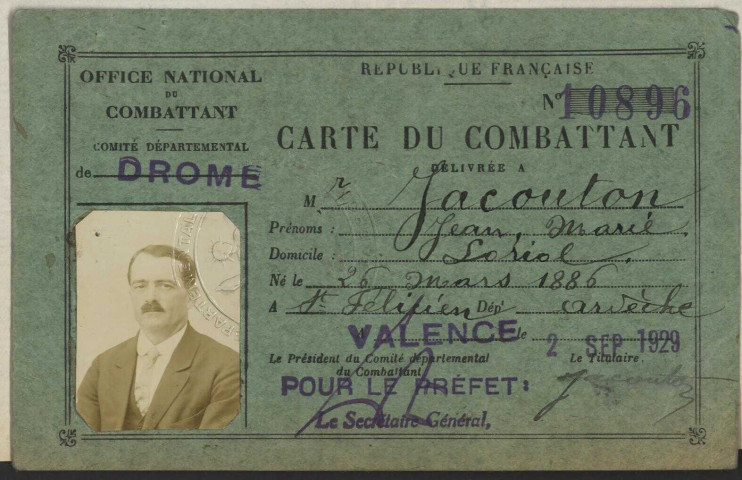 OFFICE NATIONAL
DU
COMBATTANT
COMITÉ DÉPARTEMENTAL
de DROME
REPUBLIQUE FRANÇAISE
Nº 10896
CARTE DU COMBATTANT
DÉLIVRÉE A
Mr Jacouton
Prénoms : Jean, Marie,
Domicile : Loriol.
Né le 26 mars 1886
A St Félicien Dépt ardèche
VALENCE le 2 SEP 1929
Le Président du Comité départemental
du Combattant
Le Titulaire.
POUR LE PRÉFET:
Jacouton
Le Secrétaire Général,